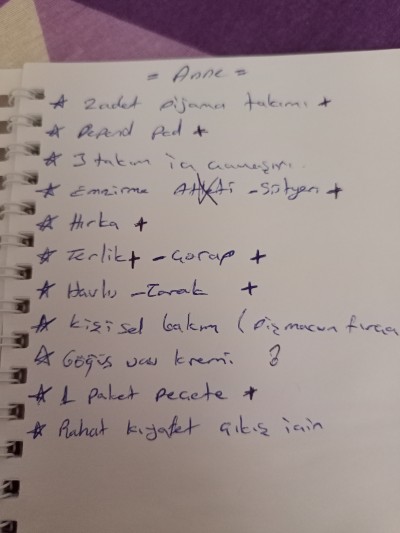 = Anne =
☆ 2 adet pijama takımı +
☆ Depend Ped +
☆ 3 takım iç çamaşırı.
☆ Emzirme Atleti - Sütyen +
☆ Hırka +
☆ Terlik + - Çorap +
☆ Havlu - Tarak +
☆ Kişisel bakım ( Diş macun fırça
☆ Göğüs ucu kremi ?
☆ 1 paket peçete +
☆ Rahat kıyafet çıkış için